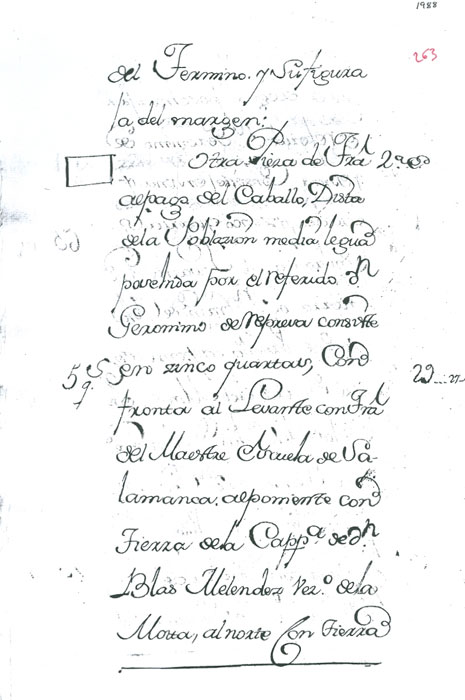 1988
263
del Termino. y Su figura
la del margen:
Otra Pieza de Tra 2.a
al pago del Caballo, Dista
dela Poblazion media legua
posehida por el referido Dn
Geronimo de consiste
5 qs en zinco quartas, Con
fronta al Levantte con Tra
del Maestre Escuela de Sa-
lamanca. al poniente con
Tierra dela Capp.a de Dn
Blas Melendez Vez.o dela
Mota, al norte Con Tierra